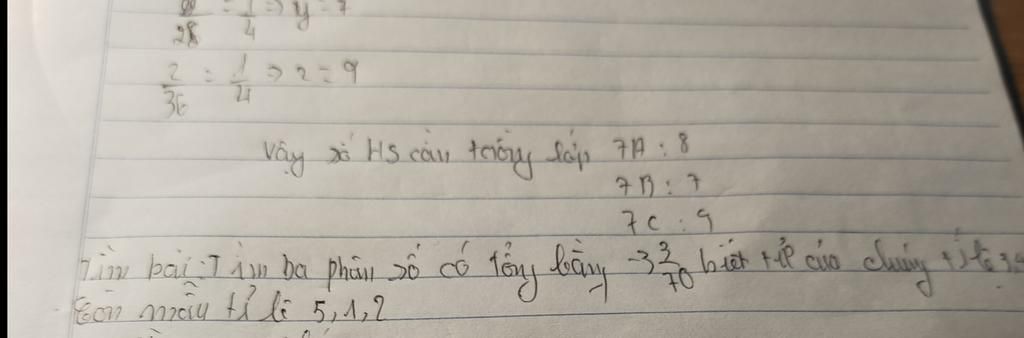 /28 = 1/4 => y = 7
z/36 = 1/4 => z = 9
Vậy số HS cần trồng lớp 7A : 8
7B : 7
7C : 9
bài: Tìm ba phân số có tổng bằng -3 3/70 biết tử của chúng tỉ lệ 3,4
còn mẫu tỉ lệ 5, 1, 2